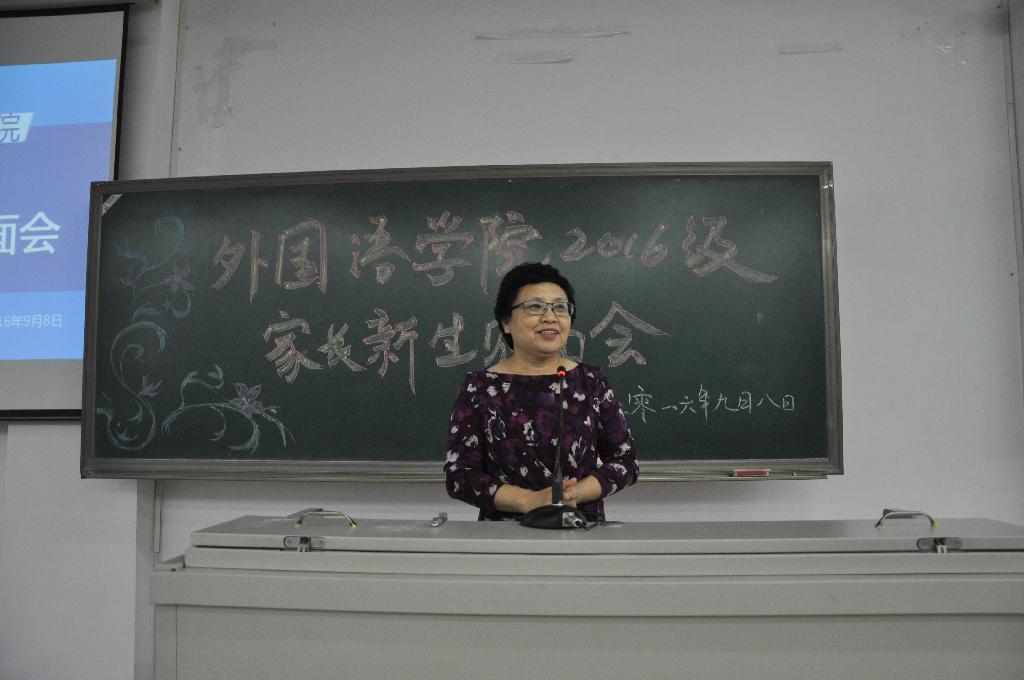 院
面会
16年9月8日
外国语学院2016级
家长新生见面会
二零一六年九月八日